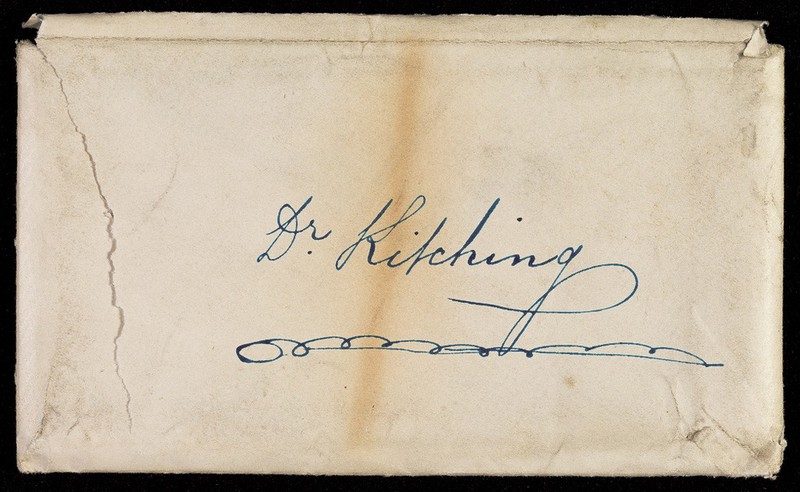 Dr. Kitching